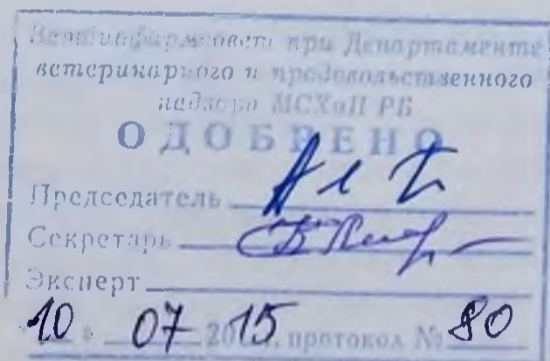 Ветбиофармсовет при Департаменте
ветеринарного и продовольственного
надзора МСХиП РБ
ОДОБРЕНО
Председатель
Секретарь
Эксперт
10 07 2015 г. протокол № 80